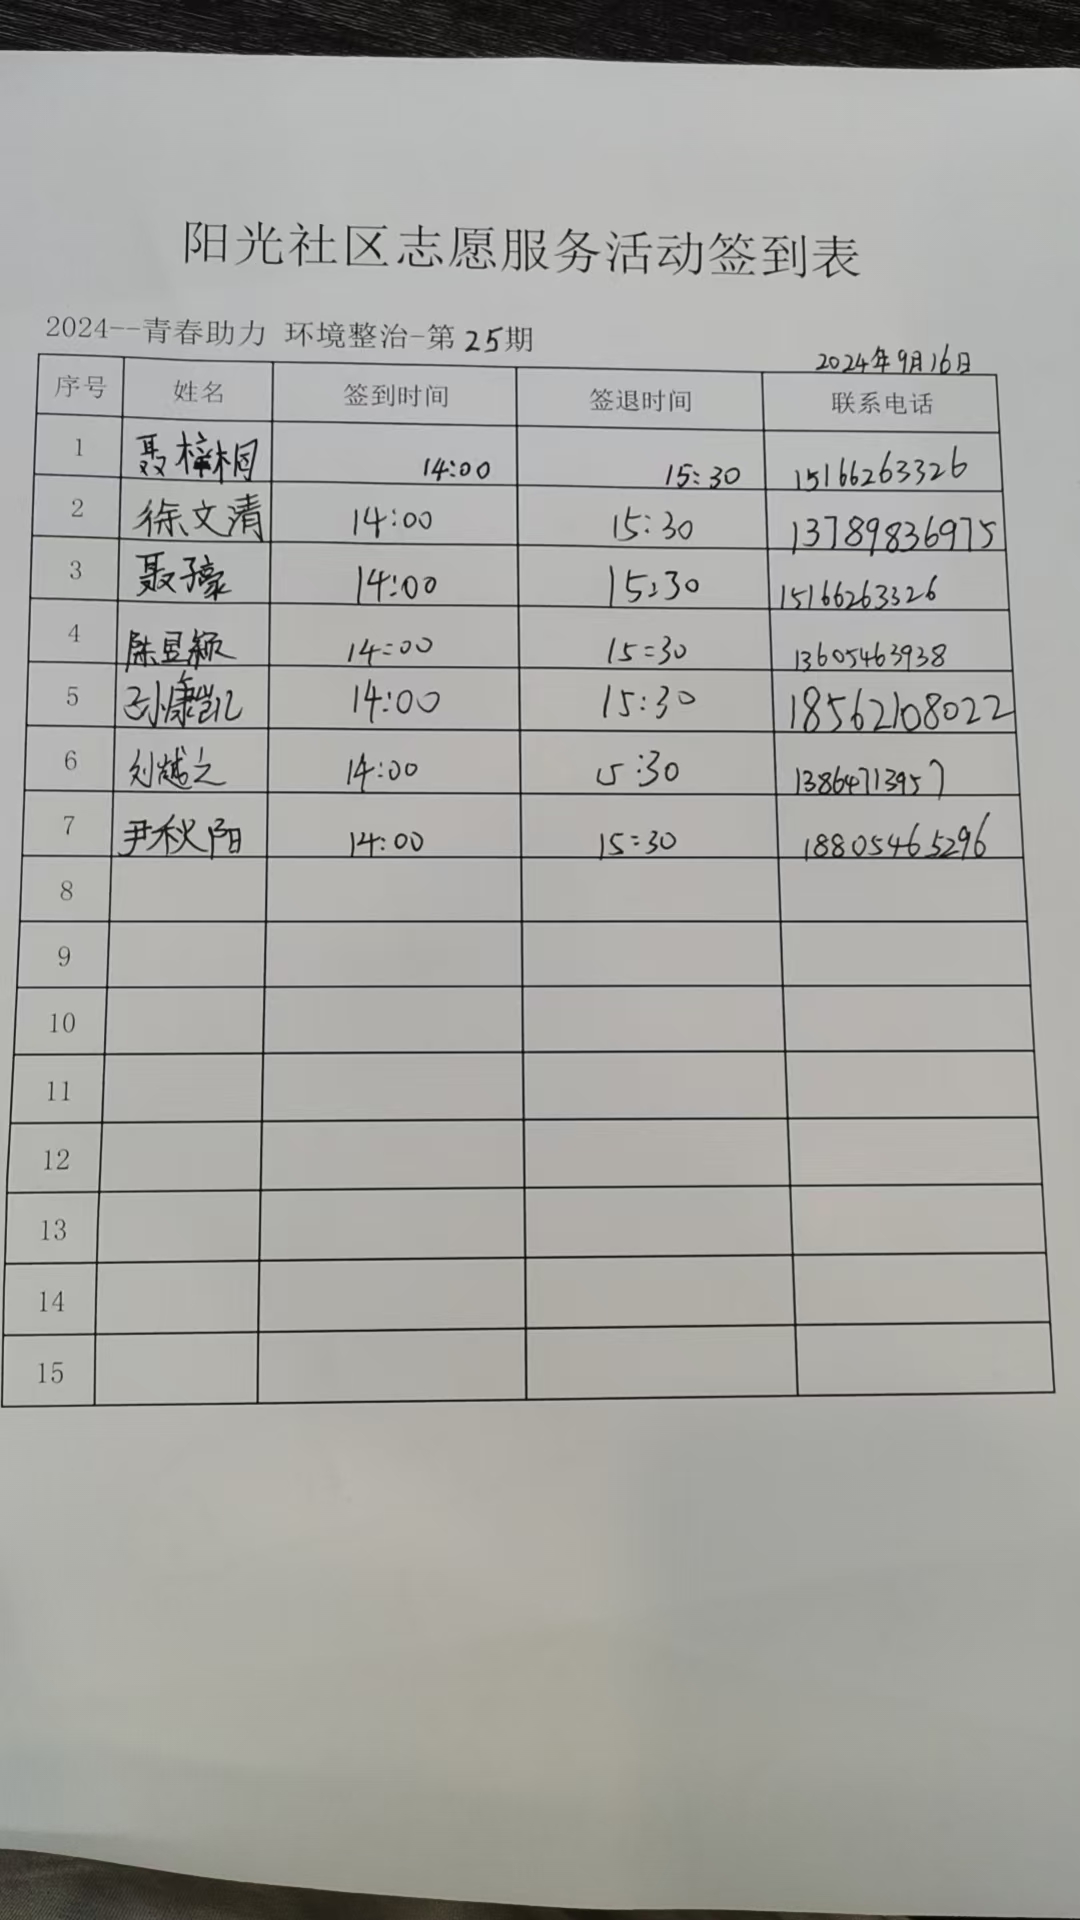 阳光社区志愿服务活动签到表
2024--青春助力 环境整治-第25期
2024年9月16日
序号 姓名 签到时间 签退时间 联系电话
1 聂梓桐 14:00 15:30 15166263326
2 徐文清 14:00 15:30 13789836975
3 聂子豪 14:00 15:30 15166263326
4 陈昱颖 14:00 15:30 13605463938
5 康凯 14:00 15:30 18562108022
6 刘越之 14:00 15:30 13864713957
7 尹秋阳 14:00 15:30 18805465296
8
9
10
11
12
13
14
15